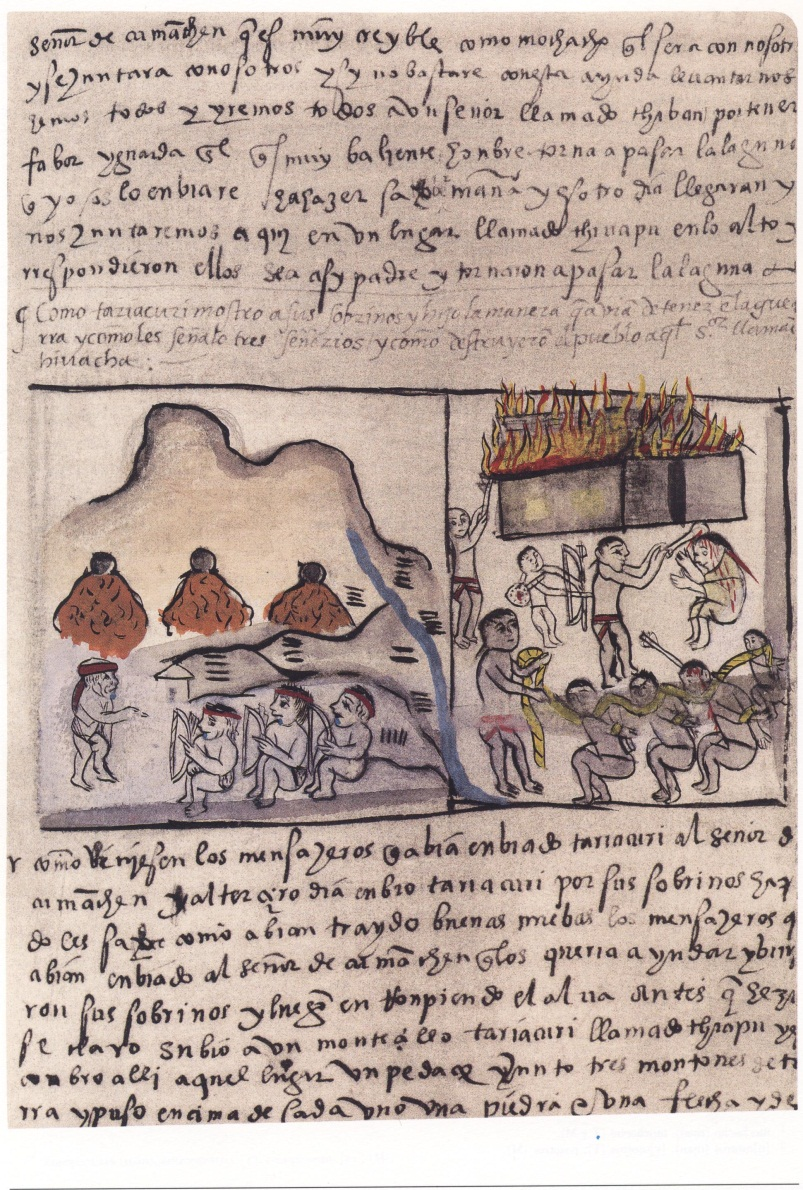 señor de cumachen q̃ es muy creyble como mochacho q̃l sera con nosotr
y se Juntara conosotros y sy no bastare conesta ayuda levantarnos
hemos todos y yremos todos a un señor llamado thiban por tener
fabor y guarda q̃l es muy baliente honbre torna a pasar la laguna
q̃ yo os lo enbiare hahazer saber mañana y esotro dia llegaran y
nos Juntaremos aqui en un lugar llamado thivapu enlo alto y
rrespondieron ellos sea asy padre y tornaron a pasar la laguna
¶ Como tariacuri mostro a sus sobrinos y hijo la manera q̃ avian de tener en la gue
rra y como les señalo tres señorios y como destruyerõ el pueblo de aql̃ sr̃ llama
hivacha:
como viniesen los mensajeros q̃ abian enbiado tariacuri al señor d
cumachen y al tercero dia enbio tariacuri por sus sobrinos haz
doles saber como abian traydo buenas nuebas los mensajeros q
abian enbiado al señor de cumachen q̃ los queria ayudar y bin
ron sus sobrinos y luego en Ronpiendo el alva antes q̃ hezi
se claro subio a un montezillo tariacuri llamado thivapu y
conbro alli aquel lugar un pedaço y Junto tres montones de ti
rra y puso encima de cada uno una piedra e una flecha y de